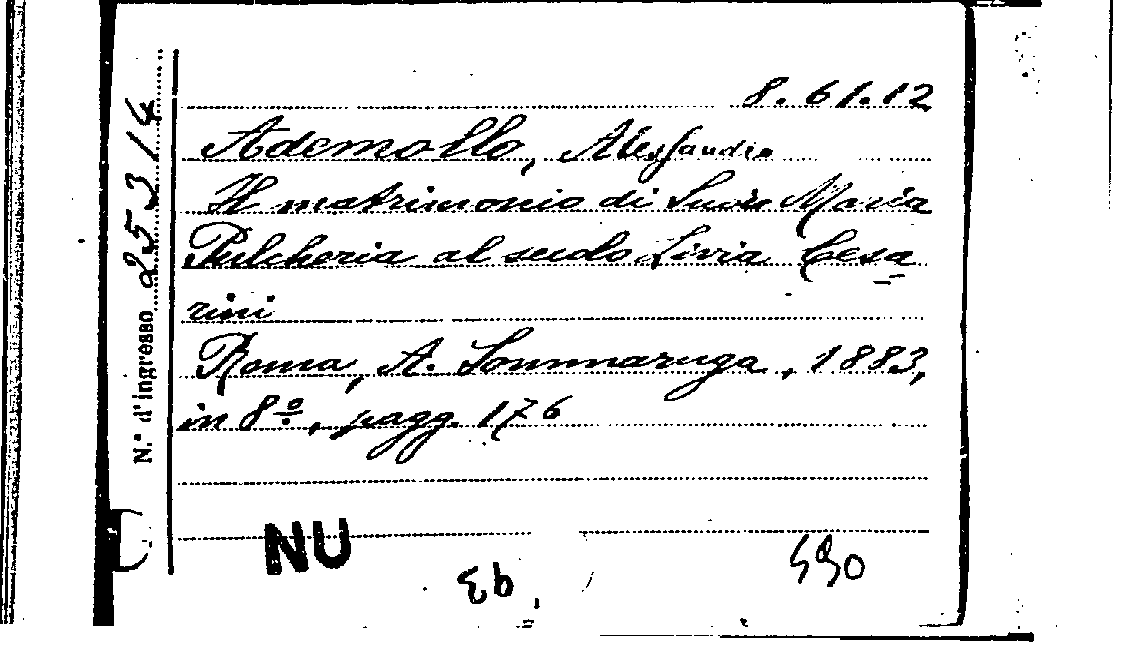 8.61.12
Ademollo, Alessandro
Il matrimonio di Suor Maria
Pulcheria al secolo Livia Cesa
rini
Roma, A. Sommaruga, 1883,
in 8º, pagg. 176
N.º d'ingresso 25314
NU
590